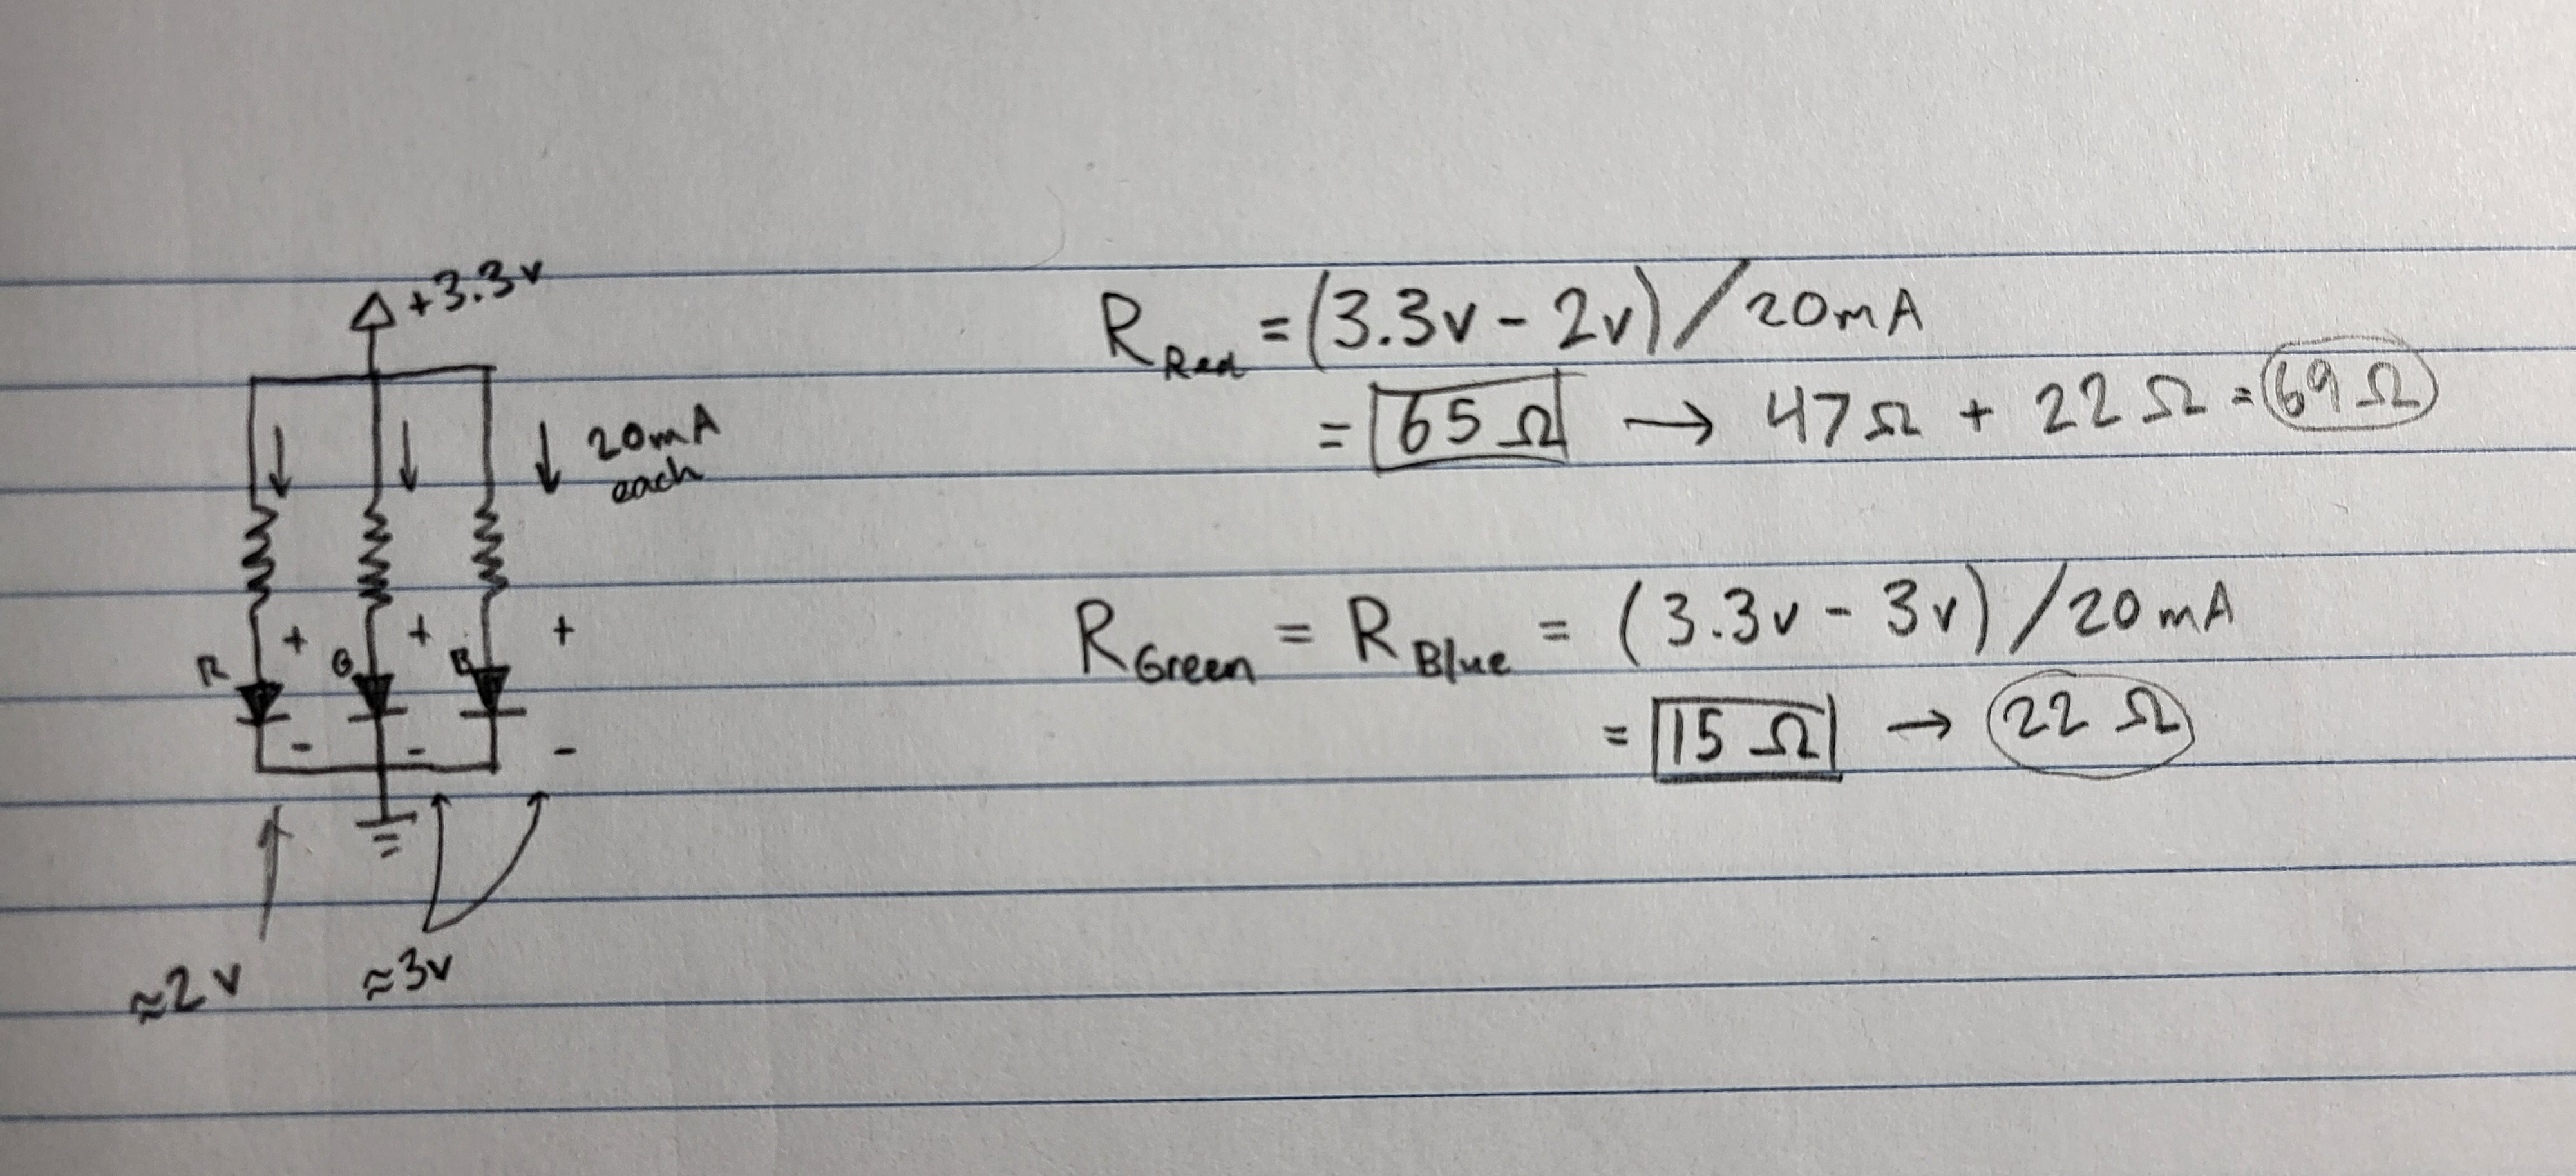 +3.3v
20mA
each
R + G + B +
- - -
≈2v ≈3v
R Red = (3.3v - 2v) / 20mA
= 65 Ω → 47Ω + 22Ω = 69Ω
R Green = R Blue = (3.3v - 3v) / 20mA
= 15 Ω → 22 Ω